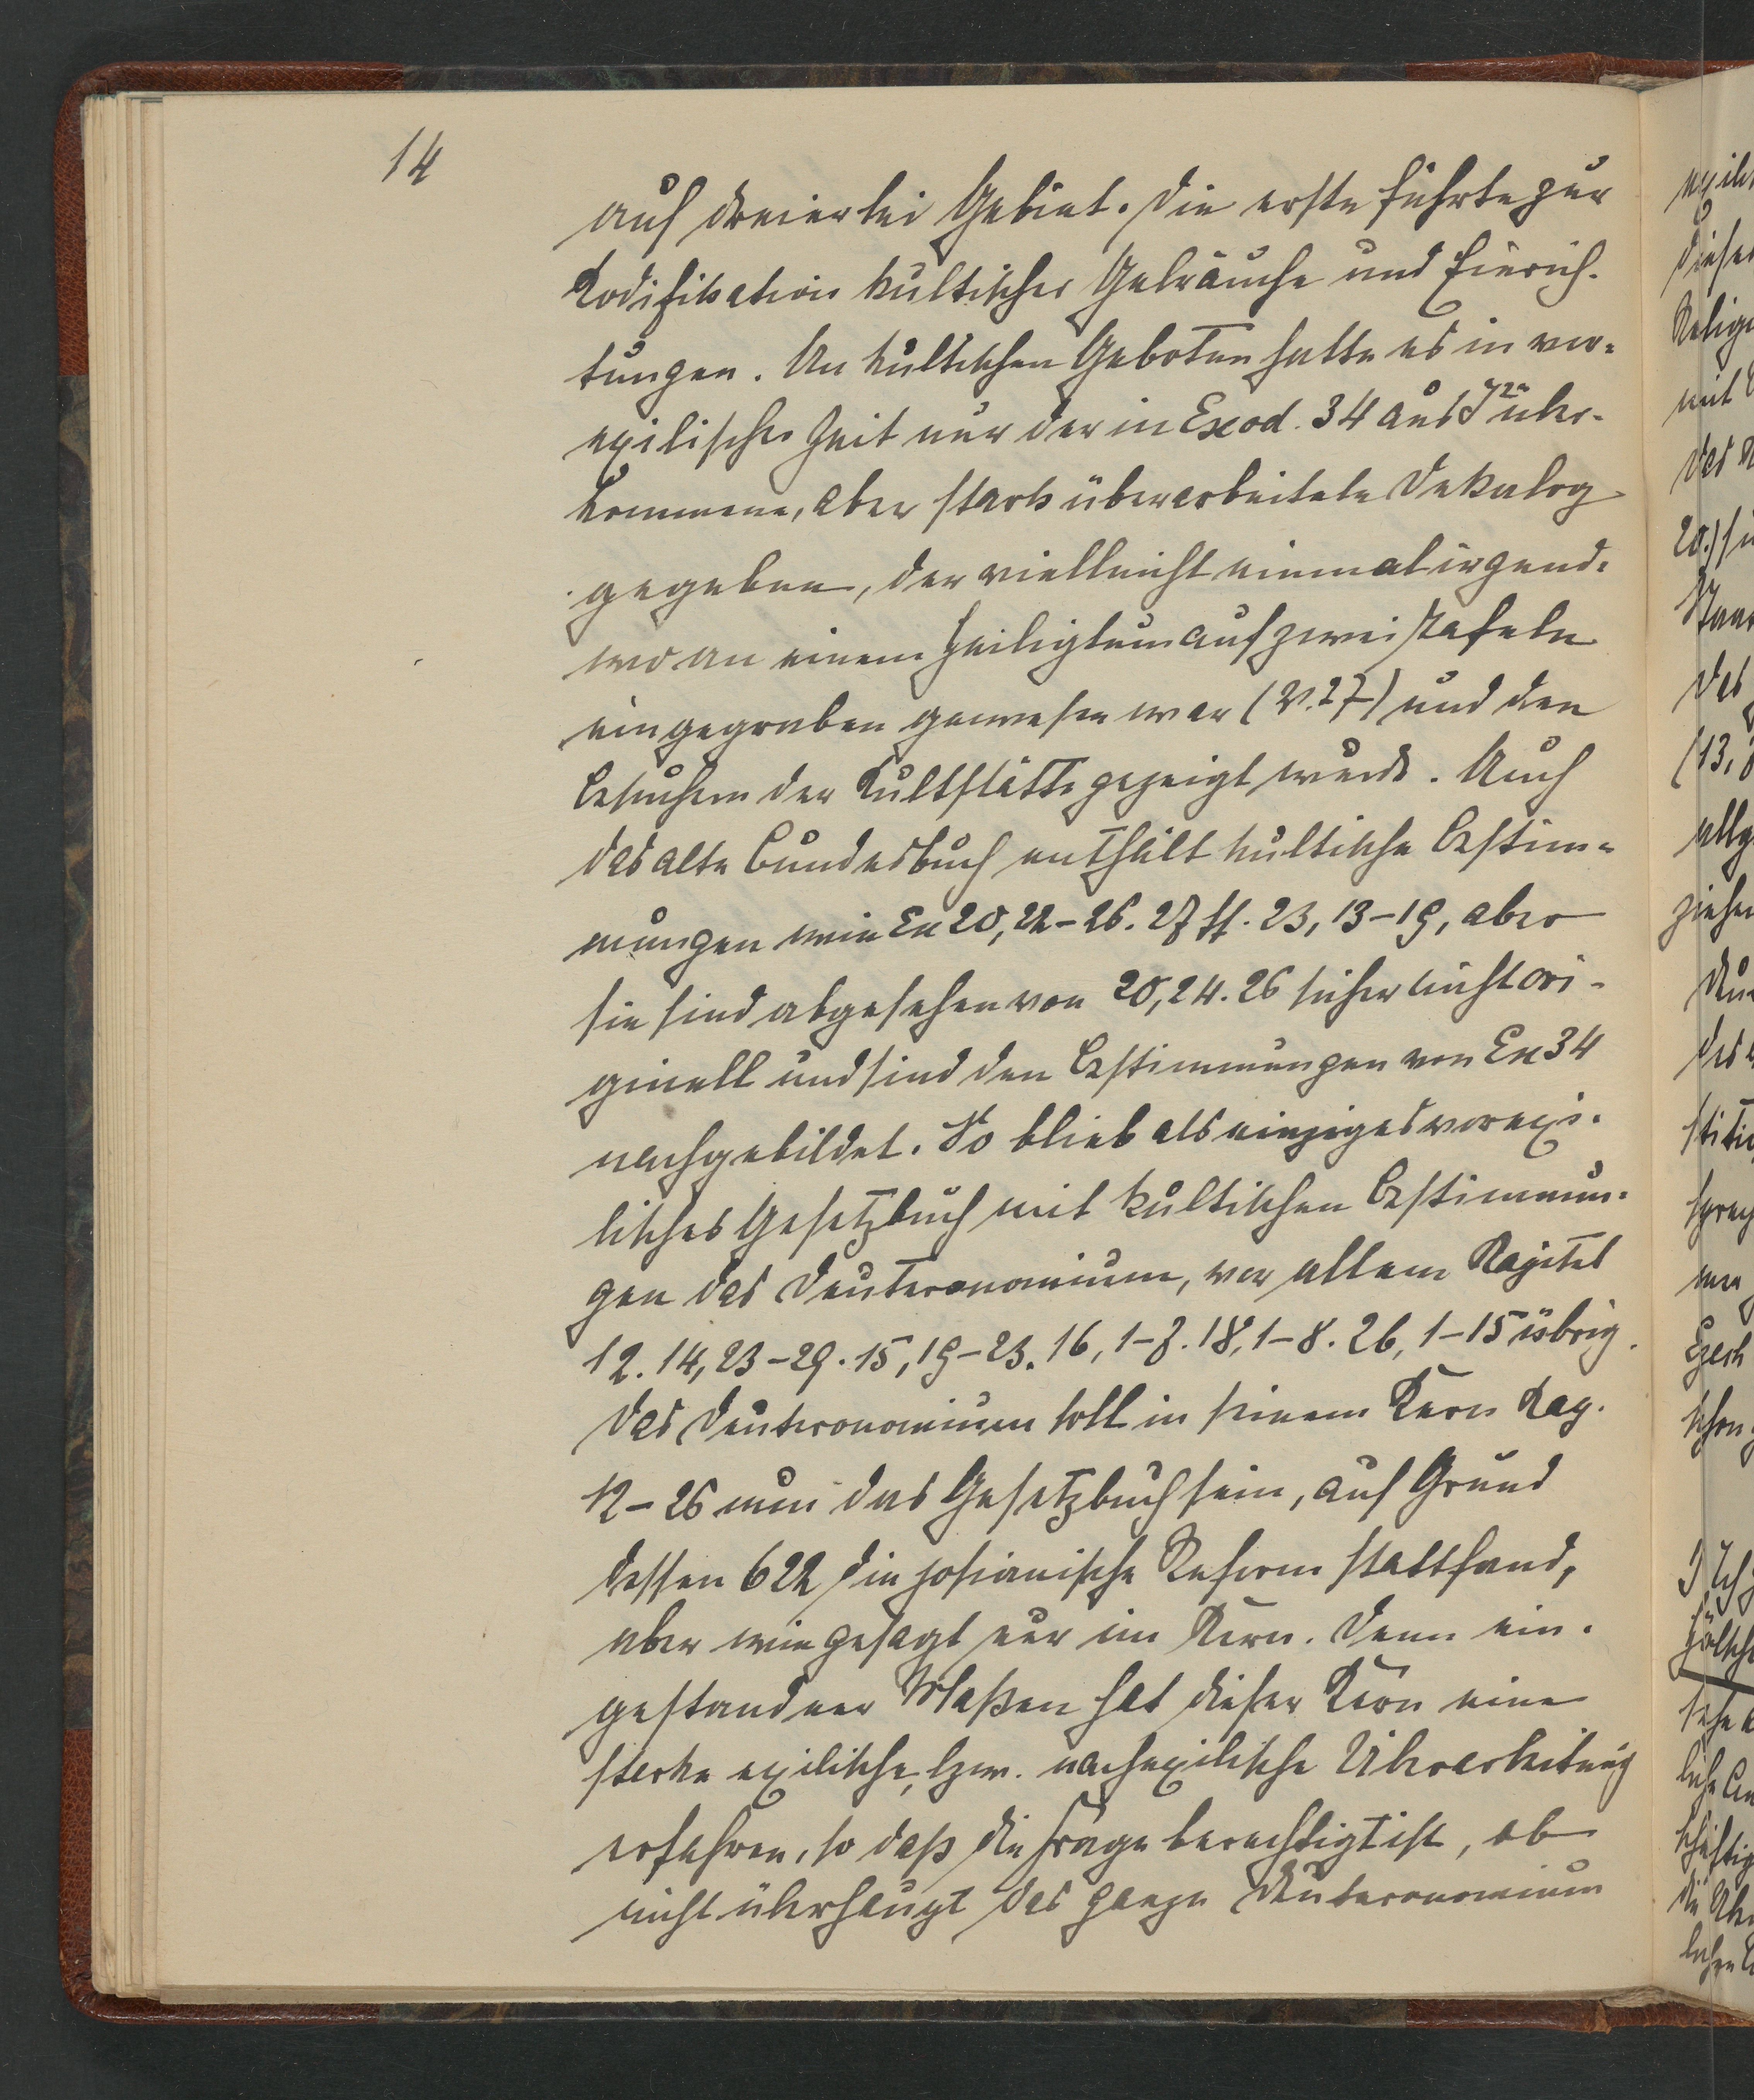 14
auf dreierlei Gebiet. Die erste führte zur
Kodifikation kultischer Gebräuche und Einrich-
tungen. An kultischen Geboten hatte es in vor-
exilischer Zeit nur der in Exod. 34 aus J2 über-
kommene, aber stark überarbeitete Dekalog
gegeben, der vielleicht einmal irgend-
wo an einem Heiligtum auf zwei Tafeln
eingegraben gewesen war (V. 27) und den
Besuchern der Kultstätte gezeigt wurde. Auch
das alte Bundesbuch enthält kultische Bestim-
mungen wie Ex 20, 22-26. 27 ff. 23, 13-19, aber
sie sind abgesehen von 20, 24. 26 sicher nicht ori-
ginell und sind den Bestimmungen von Ex 34
nachgebildet. So blieb als einziges vorexi-
lisches Gesetzbuch mit kultischen Bestimmun-
gen das Deuteronomium, vor allem Kapitel
12. 14, 23-29. 15, 19-23. 16, 1-8. 18, 1-8. 26, 1-15 übrig.
Das Deuteronomium soll in seinem Kern Kap.
12-26 nun das Gesetzbuch sein, auf Grund
dessen 622 die josianische Reform stattfand,
aber wie gesagt nur im Kern. Denn ein-
gestandner Maßen hat dieser Kern eine
starke exilische, bzw. nachexilische Überarbeitung
erfahren, so daß die Frage berechtigt ist, ob
nicht überhaupt das ganze Deuteronomium